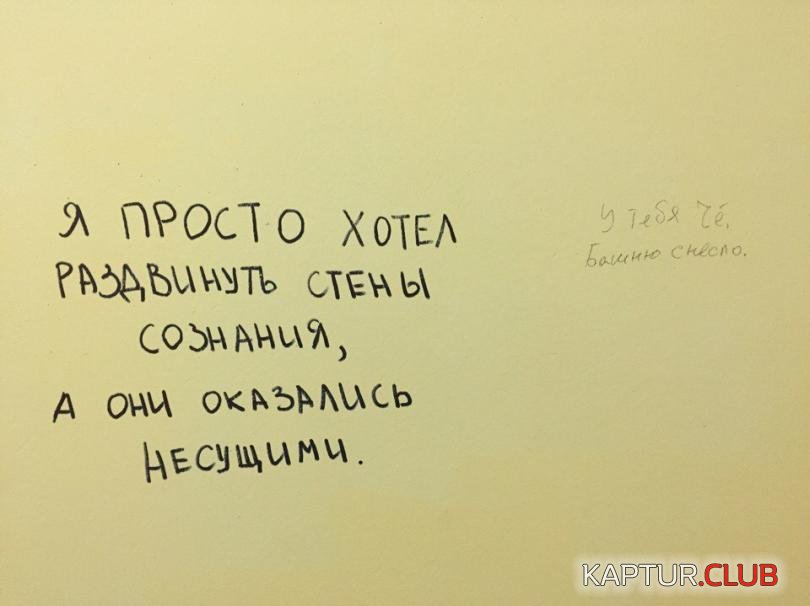 Я ПРОСТО ХОТЕЛ
РАЗДВИНУТЬ СТЕНЫ
СОЗНАНИЯ,
А ОНИ ОКАЗАЛИСЬ
НЕСУЩИМИ.
У тебя чё,
Башню снесло.
KAPTUR.CLUB